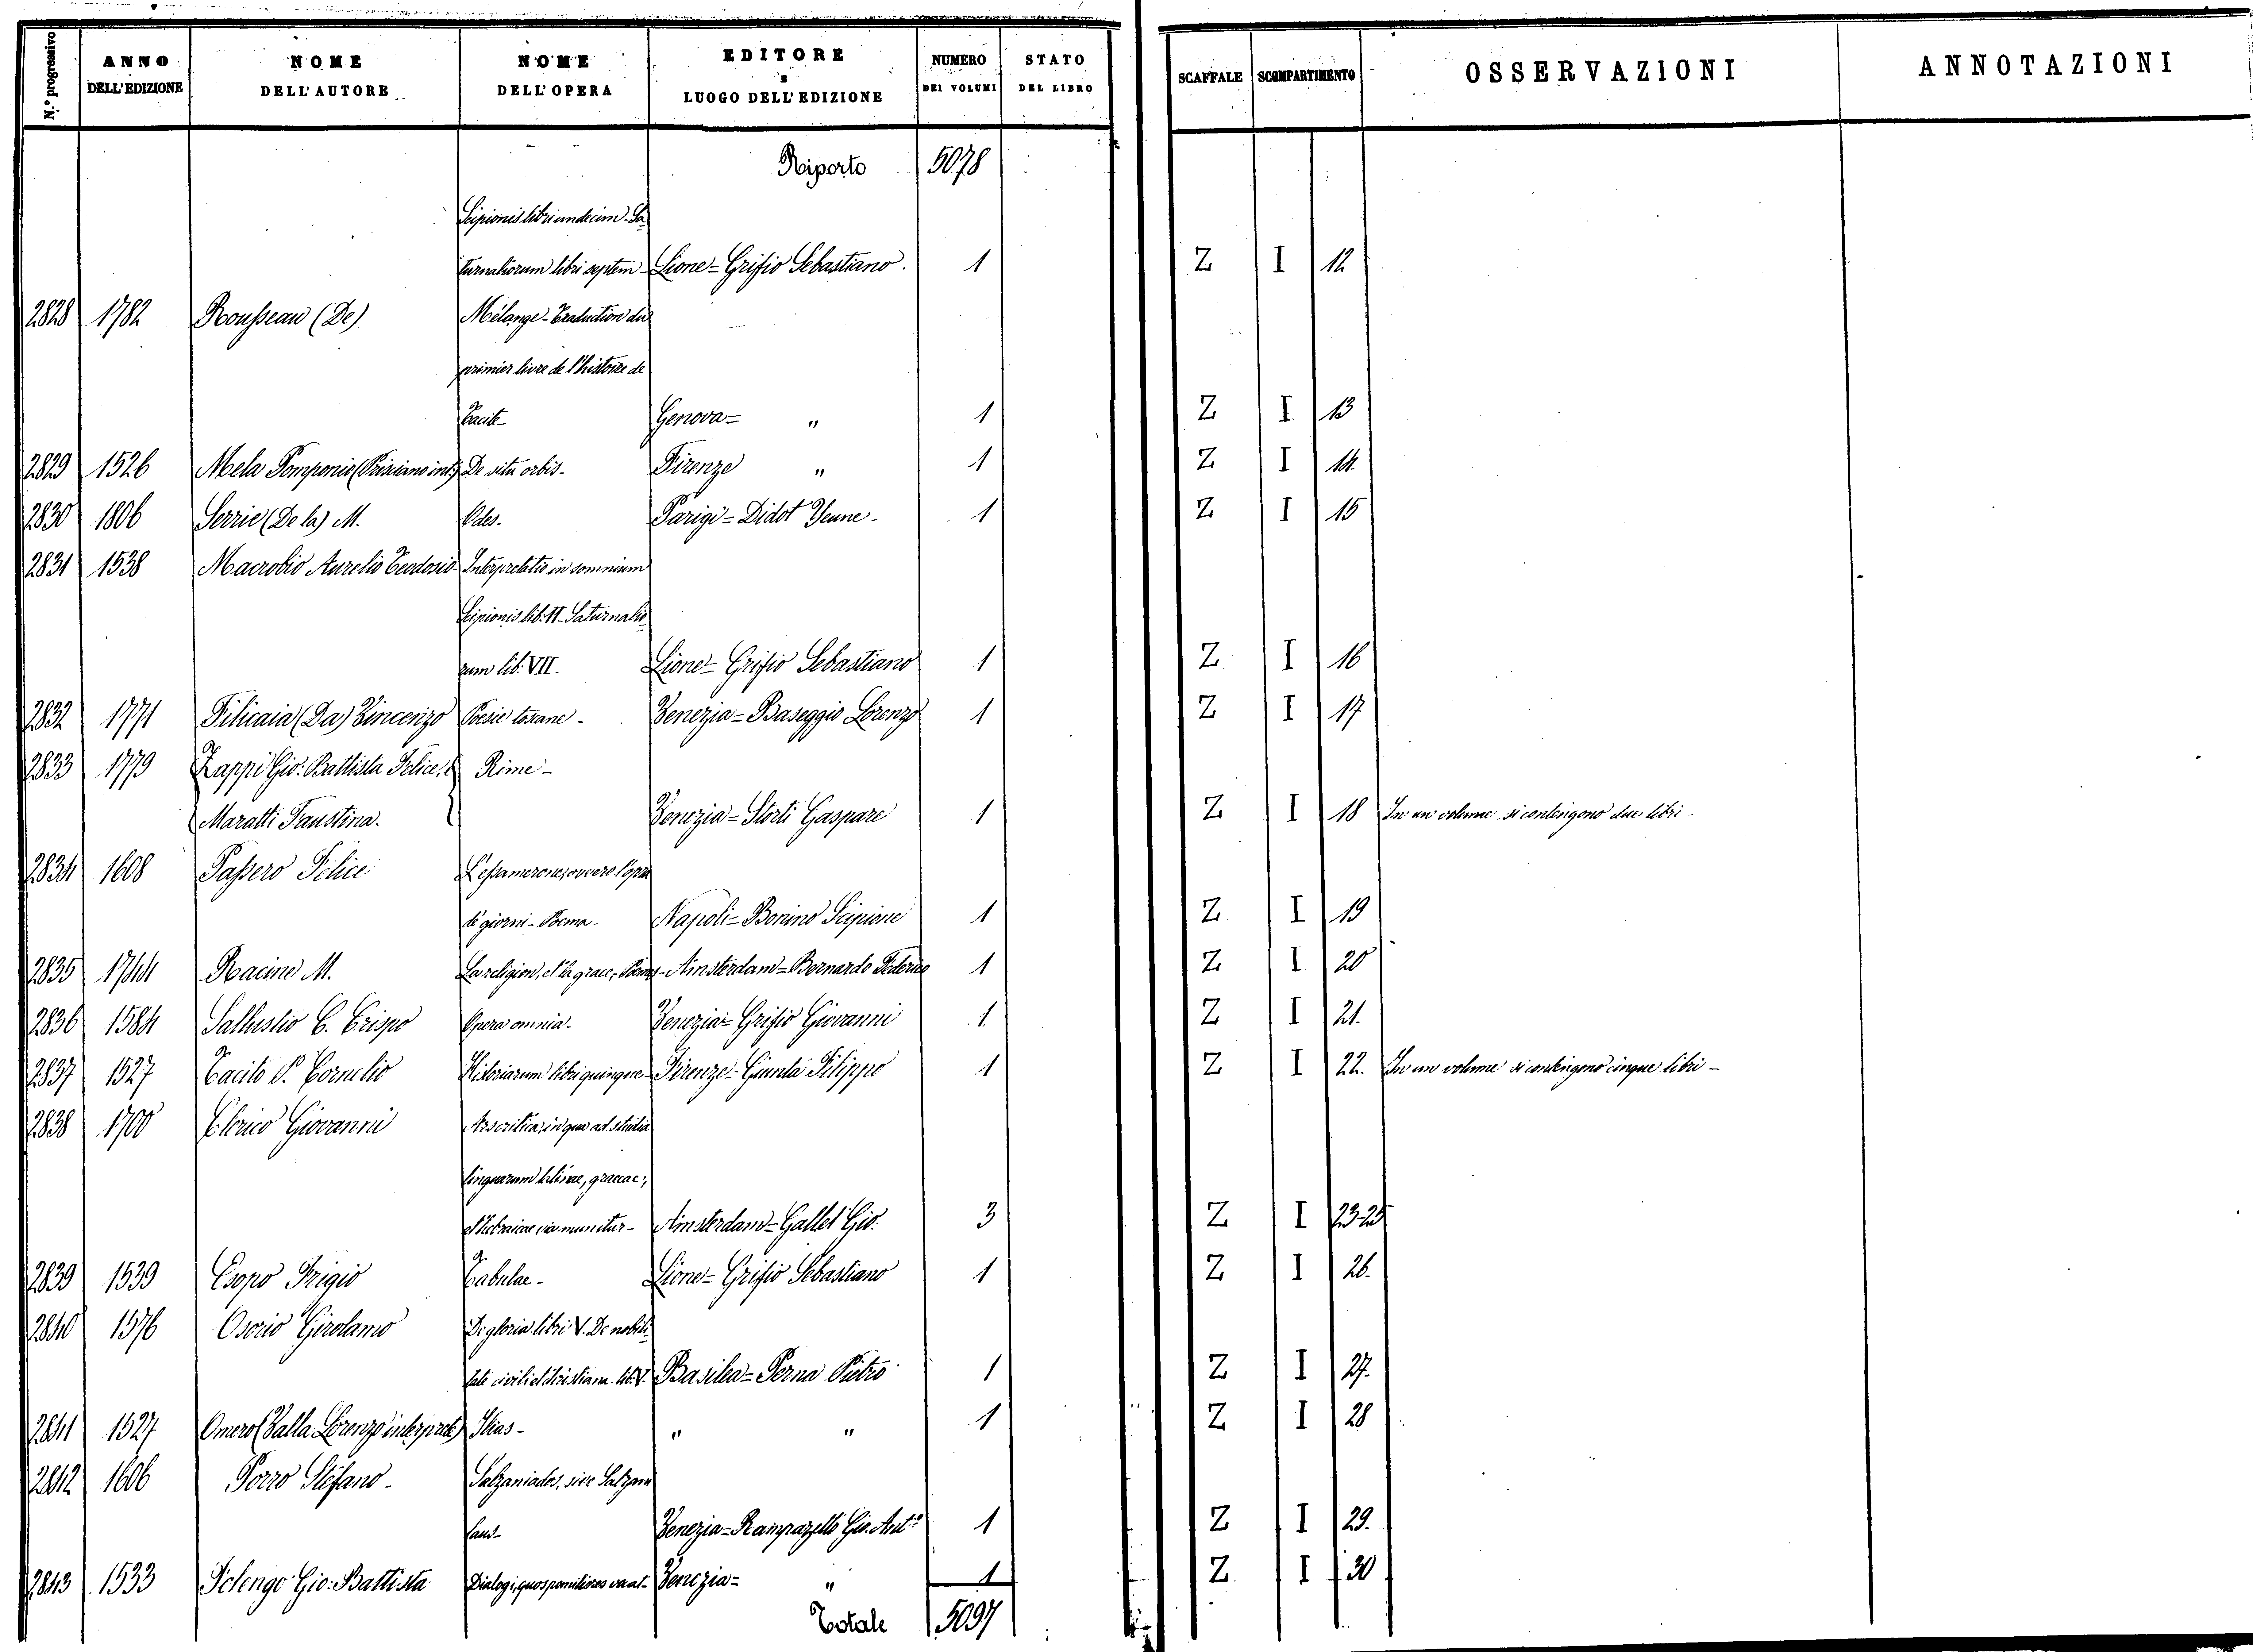 N.º progressivo ANNO DELL'EDIZIONE NOME DELL'AUTORE NOME DELL'OPERA EDITORE E LUOGO DELL'EDIZIONE NUMERO DEI VOLUMI STATO DEL LIBRO SCAFFALE SCOMPARTIMENTO OSSERVAZIONI ANNOTAZIONI
Riporto 5078
Scipionis libri undecim. Sa-
turnaliorum libri septem Lione = Grifio Sebastiano. 1 Z I 12
2828 1782 Rousseau (De) Mélange - Traduction du
primier livre de l'histoire de
Tacite Genova = " 1 Z I 13
2829 1526 Mela Pomponio (Prisiano int.) De situ orbis - Firenze " 1 Z I 14.
2830 1806 Serrie (De la) M. Odes - Parigi = Didot Jeune - 1 Z I 15
2831 1538 Macrobio Aurelio Teodosio Interpretatio in somnium
Scipionis lib. II - Saturnalio-
rum lib. VII. Lione = Grifio Sebastiano 1 Z I 16
2832 1771 Filicaia (Da) Vincenzo Poesie toscane - Venezia = Baseggio Lorenzo 1 Z I 17
2833 1779 Zappi Gio: Battista Felice, e Rime -
Maratti Faustina. Venezia = Storti Gaspare 1 Z I 18 In un volume si contengono due libri -
2834 1608 Passero Felice L'essamerone, ovvero l'opra
dè giorni - Poema - Napoli = Bonino Scipione 1 Z I 19
2835 1744 Racine M. La religion, et la grace, - Amsterdam = Bernardo Federico 1 Z I 20
2836 1584 Sallustio C. Crispo Opera omnia - Venezia = Grifio Giovanni 1 Z I 21.
2837 1527 Tacito P. Cornelio Historiarum libri quinque - Firenze - Giunta Filippo 1 Z I 22. In un volume si contengono cinque libri -
2838 1700 Clerico Giovanni Ars critica, in qua ad studia
linguarum latinae, graecae,
et hebraicae via munitur - Amsterdam = Gallet Gio: 3 Z I 23-25
2839 1539 Esopo Frigio Fabulae - Lione = Grifio Sebastiano 1 Z I 26.
2840 1576 Osorio Girolamo De gloria libri V. De nobili-
tate civili et christiana lib. V. Basilea = Perna Pietro 1 Z I 27.
2841 1527 Omero (Valla Lorenzo interprete) Ilias - " " 1 Z I 28
2842 1606 Porro Stefano - Salzaniados, sive Salzane
laus - Venezia = Rampazetto Gio. Ant.º 1 Z I 29.
2843 1533 Folengo Gio: Battista Dialogi, quos pomiliones vocat - Venezia = " 1 Z I 30
Totale 5097